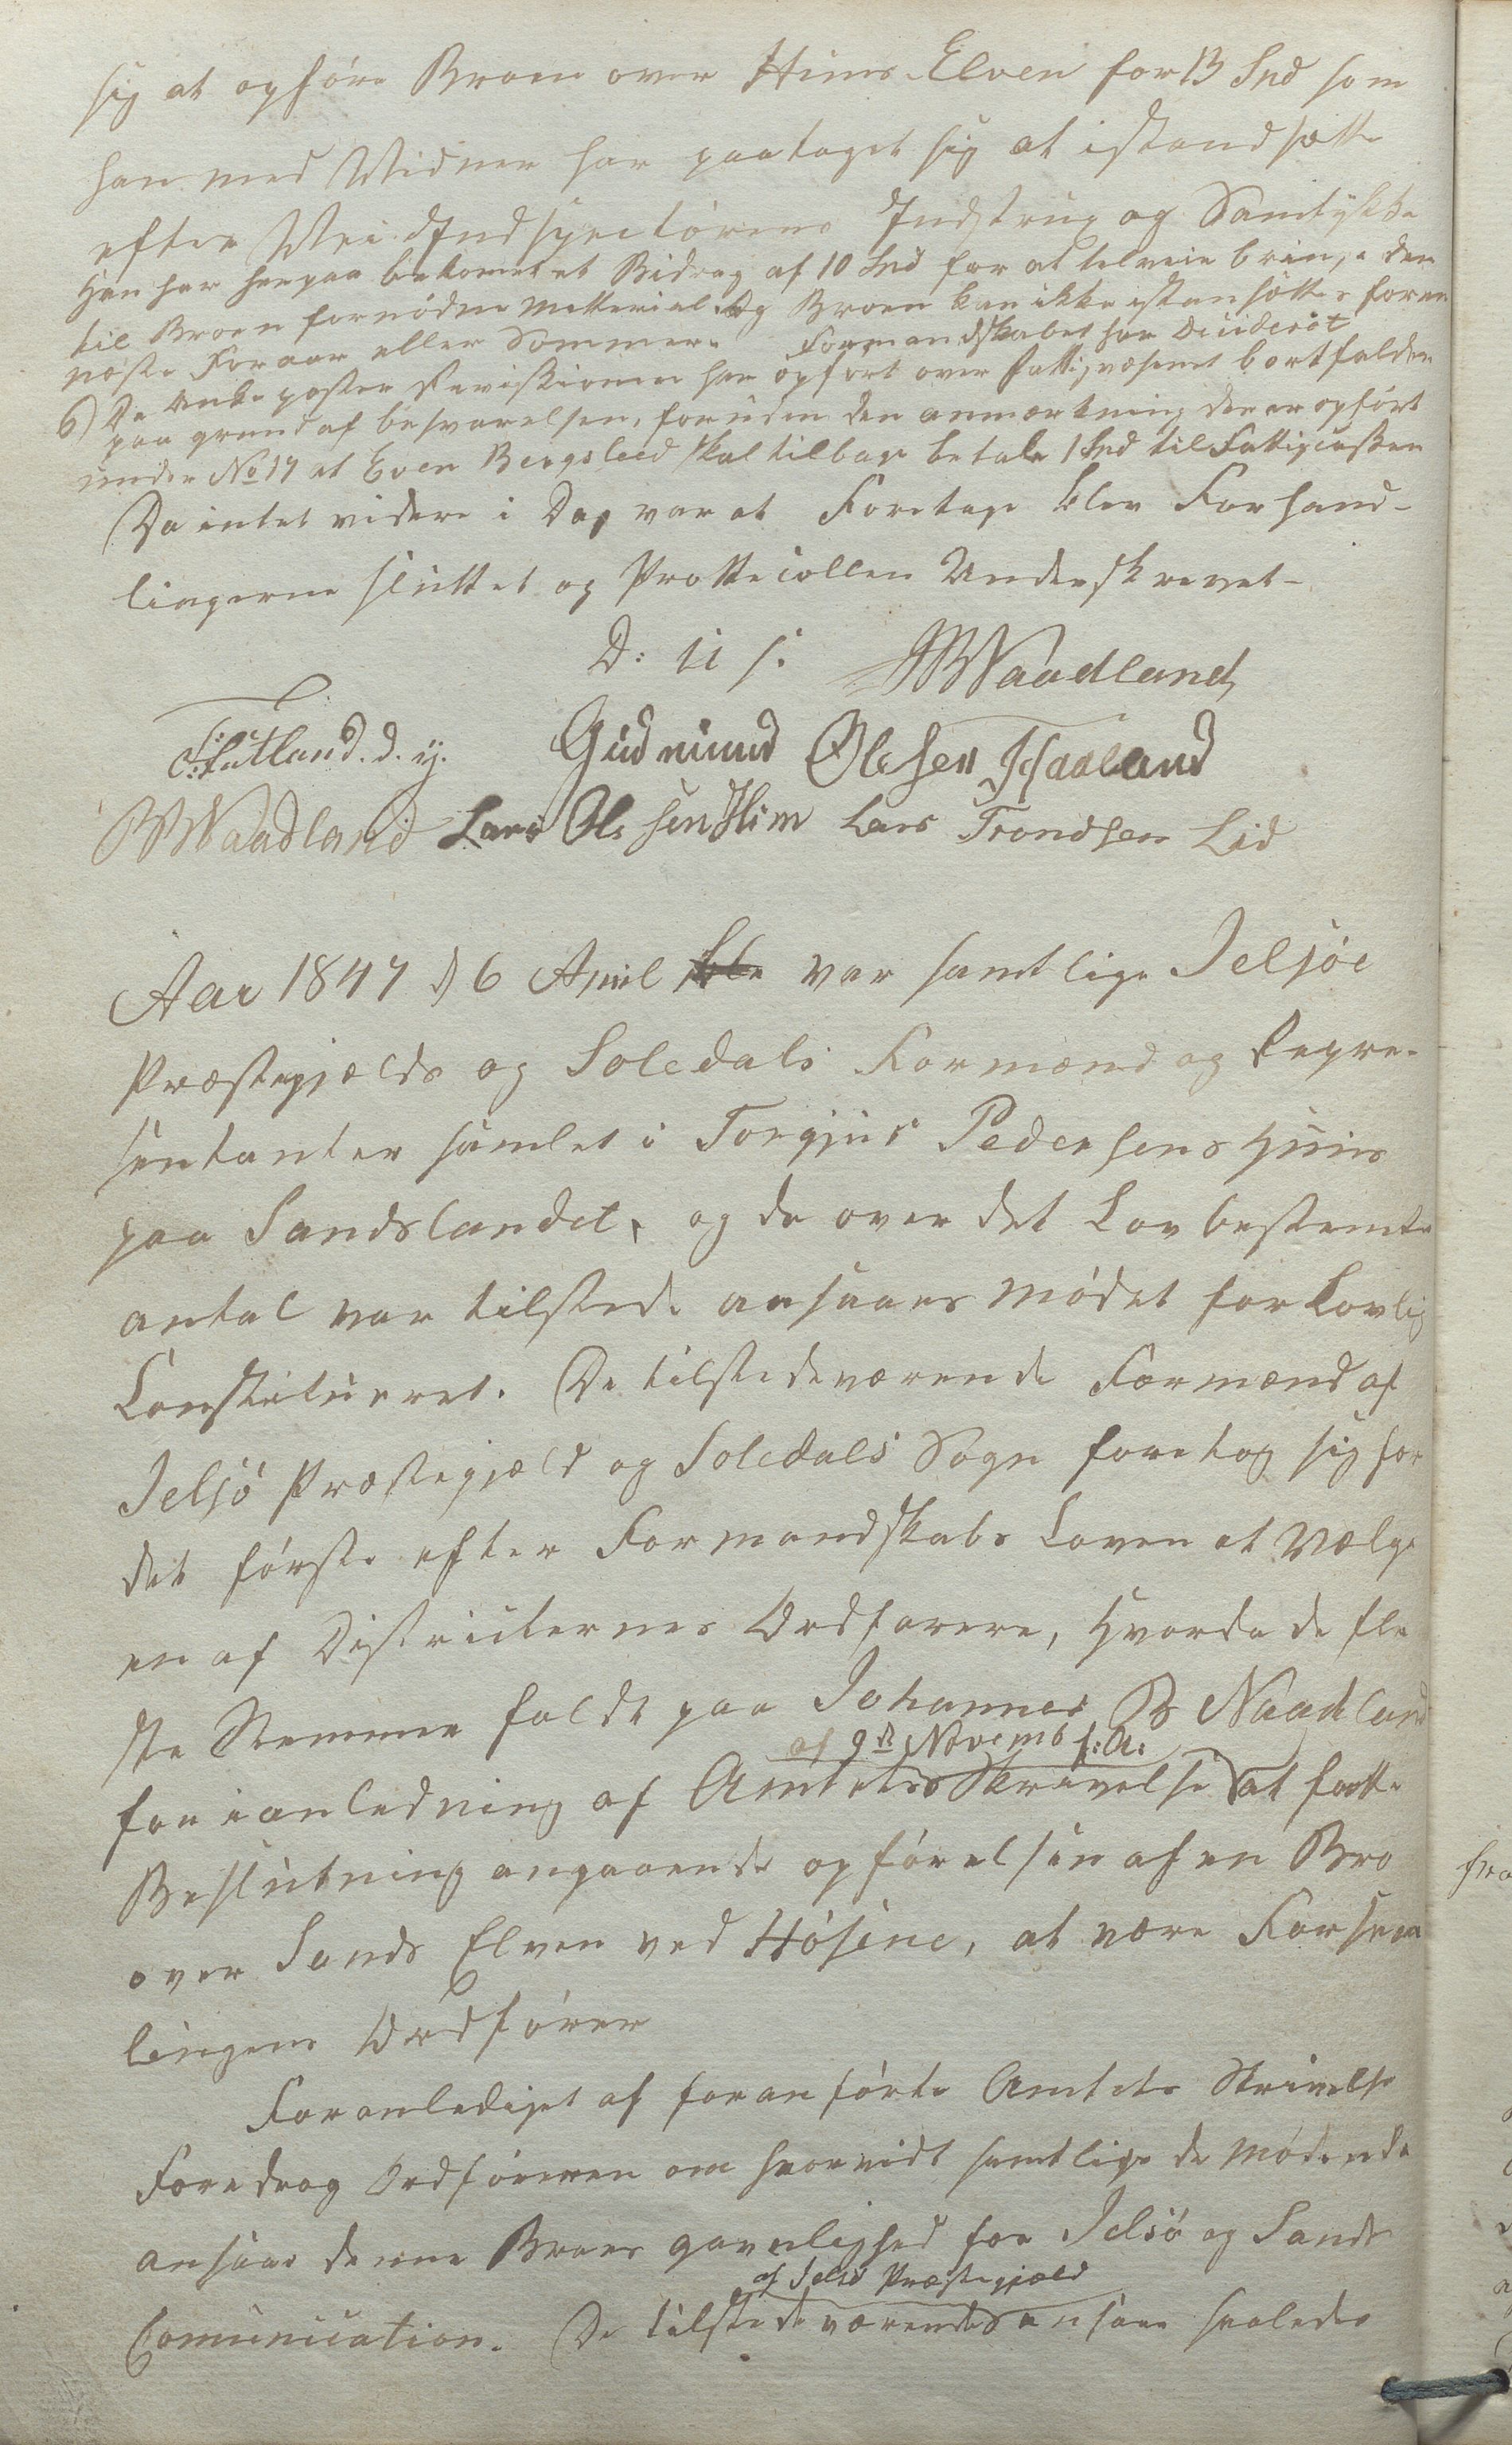 sig at opføre Broen over Hims-Elven for 13 Spd som
han med Vidner har paataget sig at istandsætte
efter Vei Indspecktørens Indstrux og Samtykke
Han har herpaa bekomet et Bidrag af 10 Spd for at tilveiebringe den
til Broen fornødne Matterial. Og Broen kan ikke istansættes foren
næste Foraar eller Sommer. Formandskabet har Decideret
6) De Anke poster Revissionen har opført over Fattigvæsenet bortfalder
paa grund af besvarelsen, foruden den anmærkning der er opført
under No 17 at Even Bergslied skal tilbage betale 1 Spd til Fattigcassen
Da intet videre i Dag var at Foretage blev Forhand-
lingerne sluttet og Prottocollen Underskrevet-
D: u s. JBNaadland
Futland. d. y. Gudmund Olsen Haaland
BNaadland Lars Olsen Him Lars Trondsen Lid
Aar 1847 d 6 April var samtlige Jelsøe
Præstegjælds og Soledals Formænd og Repre-
sentanter samlet i Torgjus Pedersens Huus
paa Sandslandet, og da over det Lov bestemte
antal var tilstede ansaaes Mødet for Lovlig
Constitueret. De tilstedeværende Formænd af
Jelsø Præstegjæld og Soledals Sogn foretog sig for
det første efter Formandskabs Loven at Vælge
en af Districternes Ordførere, Hvorda de fle
ste Stemmer faldt paa Johannes B Naadland
af 9de Novemb f:A:
for i anledning af Amtets Skrivelse at fatte
Beslutning angaaende opførelsen af en Bro
over Sands Elven ved Høsene, at være Forsam
lingens Ordfører
Foranlediget af foranførte Amtets Skrivelse
Foredrog Ordføreren om hvorvidt samtlige de Mødende
ansaae denne Broes gavnlighed for Jelsø og Sands
af Jelsø Præstegjæld
Comunication. De tilstedeværende ansaae saaledes